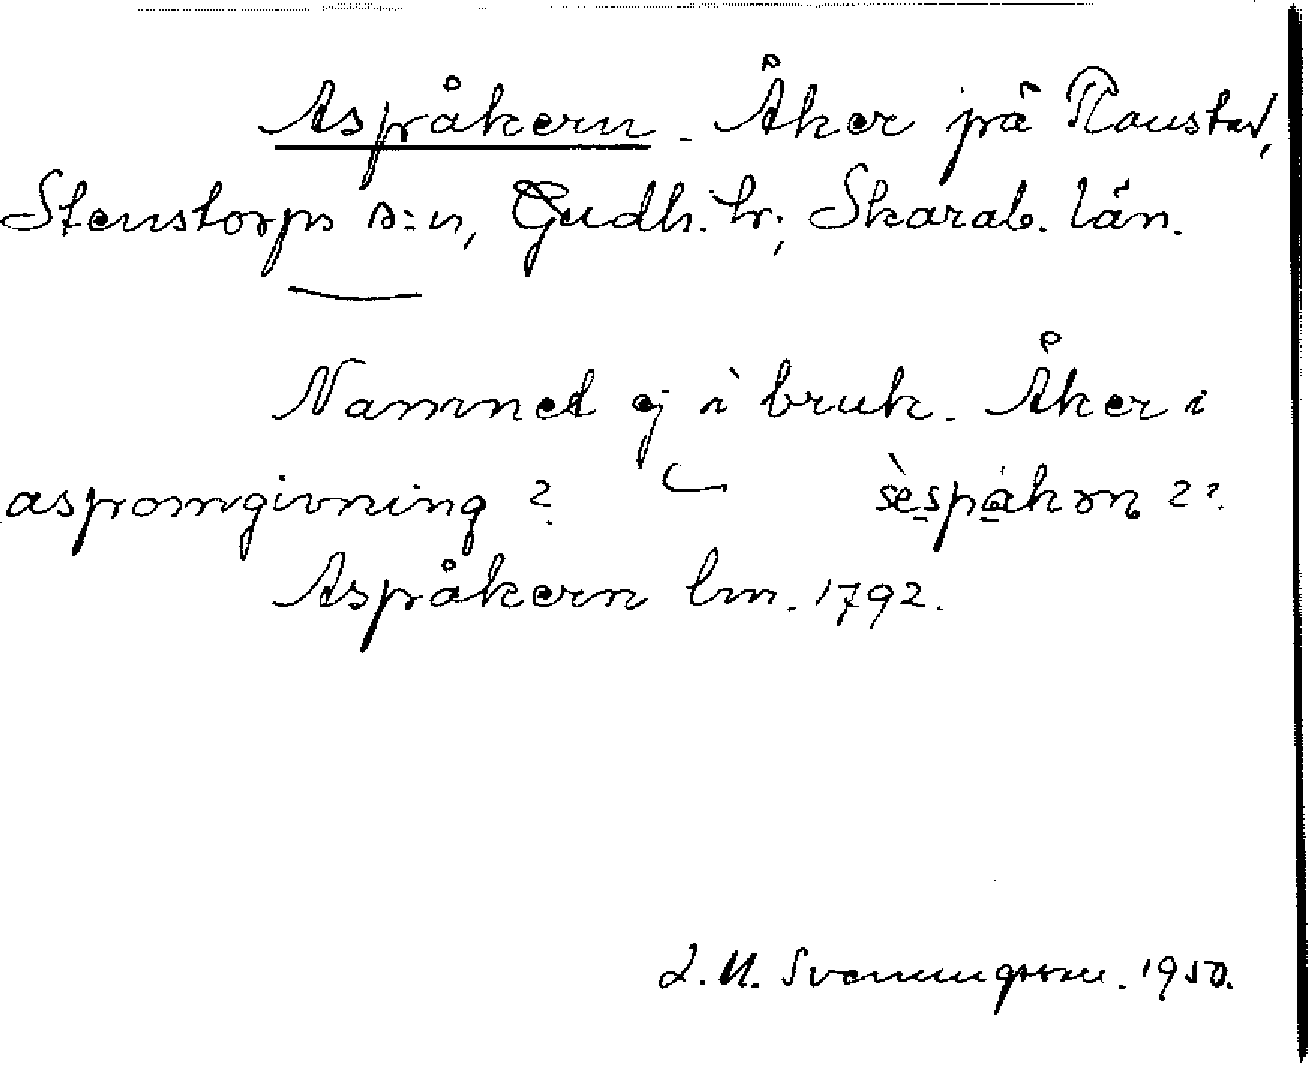 Aspråkern. Åker på Raustad,
Stenstorps s:n, Gudh. hr; Skarab. län.
Namnet ej i bruk. Åker i
aspromgivning?
Aspråkern lm. 1792.
Svenningsson. 1950.